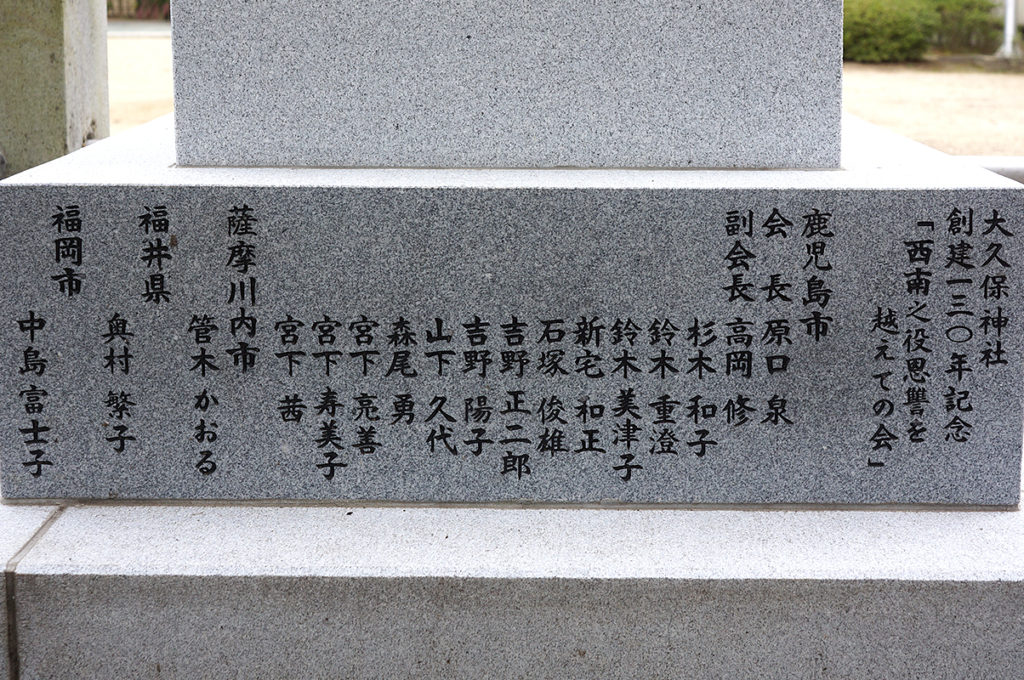 大久保神社
創建一三〇年記念
「西南之役恩讐を
越えての会」
鹿児島市
会長 原口 泉
副会長 高岡 修
杉木 和子
鈴木 重澄
鈴木 美津子
新宅 和正
石塚 俊雄
吉野 正二郎
吉野 陽子
山下 久代
森尾 勇
宮下 亮善
宮下 寿美子
宮下 茜
薩摩川内市
管木 かおる
福井県
奥村 繁子
福岡市
中島 富士子